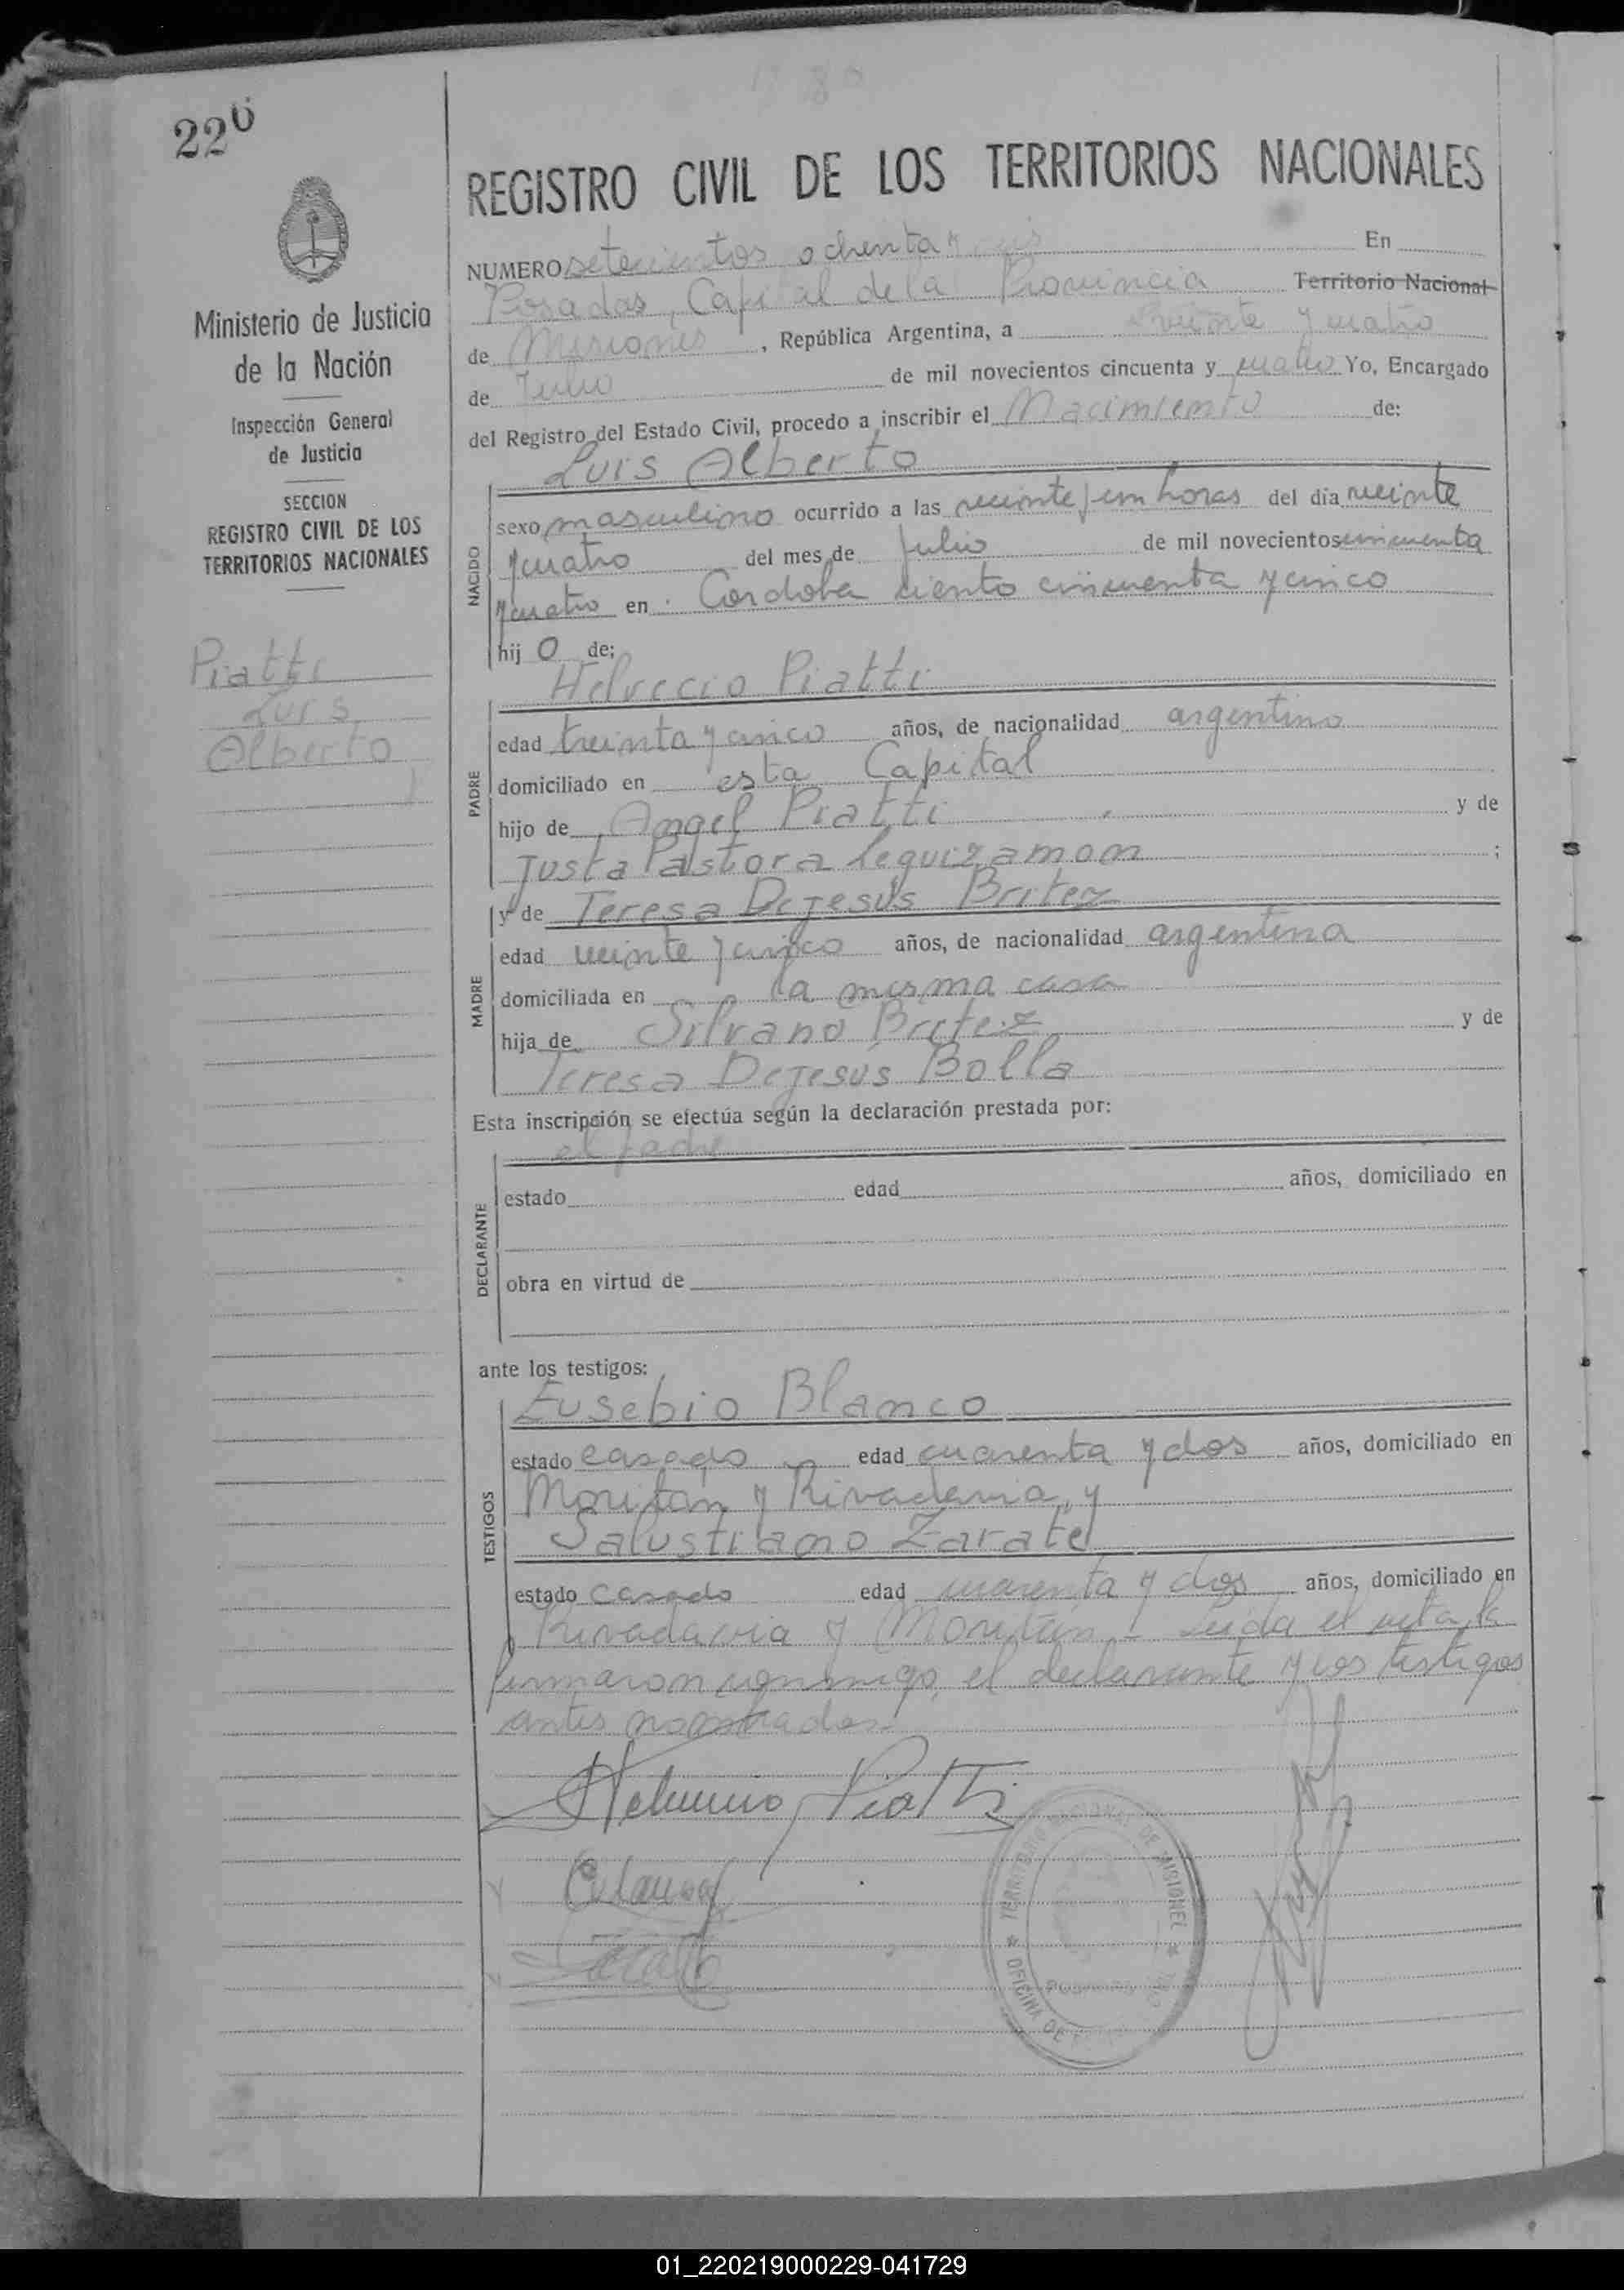 226
REGISTRO CIVIL DE LOS TERRITORIOS NACIONALES
NUMERO setecientos ochenta y seis En
Posadas, Capital de la Provincia Territorio Nacional
de Misiones, República Argentina, a veinte y cuatro
de Julio de mil novecientos cincuenta y cuatro Yo, Encargado
del Registro del Estado Civil, procedo a inscribir el Nacimiento de:
Ministerio de Justicia
de la Nación
Inspección General
de Justicia
SECCION
REGISTRO CIVIL DE LOS
TERRITORIOS NACIONALES
Piatti
Luis
Alberto
NACIDO
Luis Alberto
sexo masculino ocurrido a las veinte y un horas del día veinte
y cuatro del mes de Julio de mil novecientos cincuenta
y cuatro en Cordoba ciento cincuenta y cinco
hij o de:
PADRE
Helvecio Piatti
edad treinta y cinco años, de nacionalidad argentino
domiciliado en esta Capital
hijo de Angel Piatti y de
Justa Pastora Leguizamon ;
y de Teresa Dejesús Britez
MADRE
edad veinte y cinco años, de nacionalidad argentina
domiciliada en la misma casa
hija de Silvano Britez y de
Teresa Dejesús Bolla
Esta inscripción se efectúa según la declaración prestada por:
el padre
DECLARANTE
estado edad años, domiciliado en
obra en virtud de
ante los testigos:
TESTIGOS
Eusebio Blanco
estado casado edad cuarenta y dos años, domiciliado en
Moritán y Rivadavia, y
Salustiano Zarate
estado casado edad cuarenta y dos años, domiciliado en
Rivadavia y Moritán - Leida el acta, la
firmaron conmigo, el declarante y los testigos
antes nombrados.
Helvecio Piatti
TERRITORIO NACIONAL DE MISIONES
OFICINA DE
01_220219000229-041729